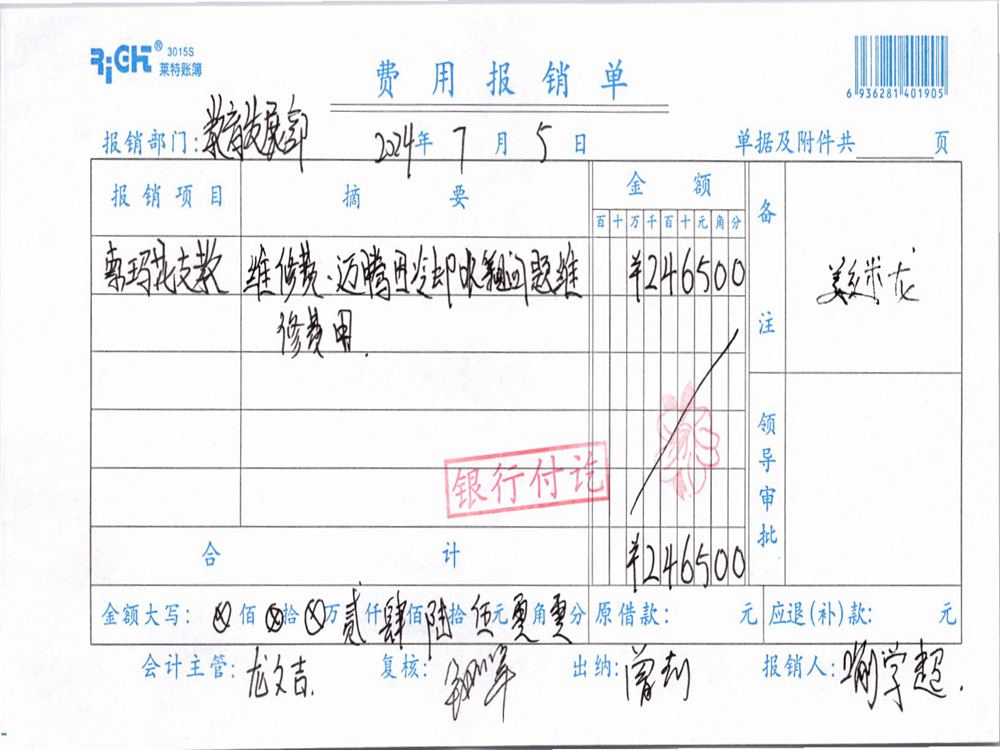 RiGHT® 3015S
莱特账簿
费用报销单
6 936281 401905
报销部门：教育发展部 2024年7月5日 单据及附件共 页
报销项目 摘要 金额 备注
百十万千百十元角分
索玛花支教 维修费、迈腾因冷却水箱问题维 ¥246500
修费用.
银行付讫
领导审批
合计 ¥246500
金额大写：ⓧ佰ⓧ拾ⓧ万贰仟肆佰陆拾伍元零角零分 原借款： 元 应退(补)款： 元
会计主管：龙文吉. 复核： 出纳：曾利 报销人：喻学超.